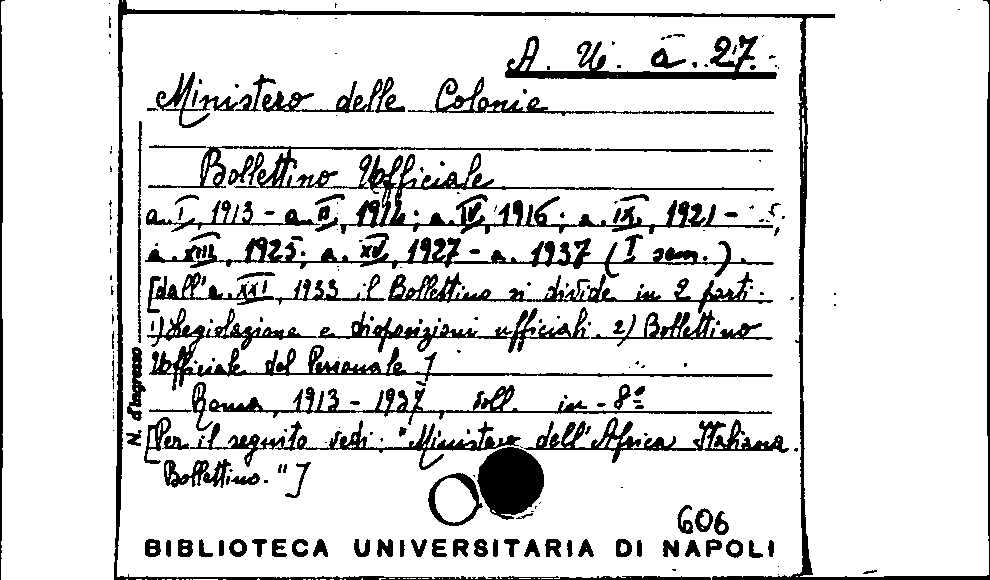 A. Uf. a. 27.
Ministero delle Colonie.
Bollettino Ufficiale.
a. I, 1913 - a. II, 1914; a. IV, 1916; a. IX, 1921 -
a. XIII, 1925; a. XV, 1927 - a. 1937 (I sem.).
[dall'a. XXI, 1933 il Bollettino si divide in 2 parti:
1) Legislazione e disposizioni ufficiali. 2) Bollettino
Ufficiale del Personale.]
Roma, 1913 - 1937, voll. in - 8º
[Per il seguito vedi: "Ministero dell'Africa Italiana.
Bollettino."]
N. d'Ingresso
606
BIBLIOTECA UNIVERSITARIA DI NAPOLI